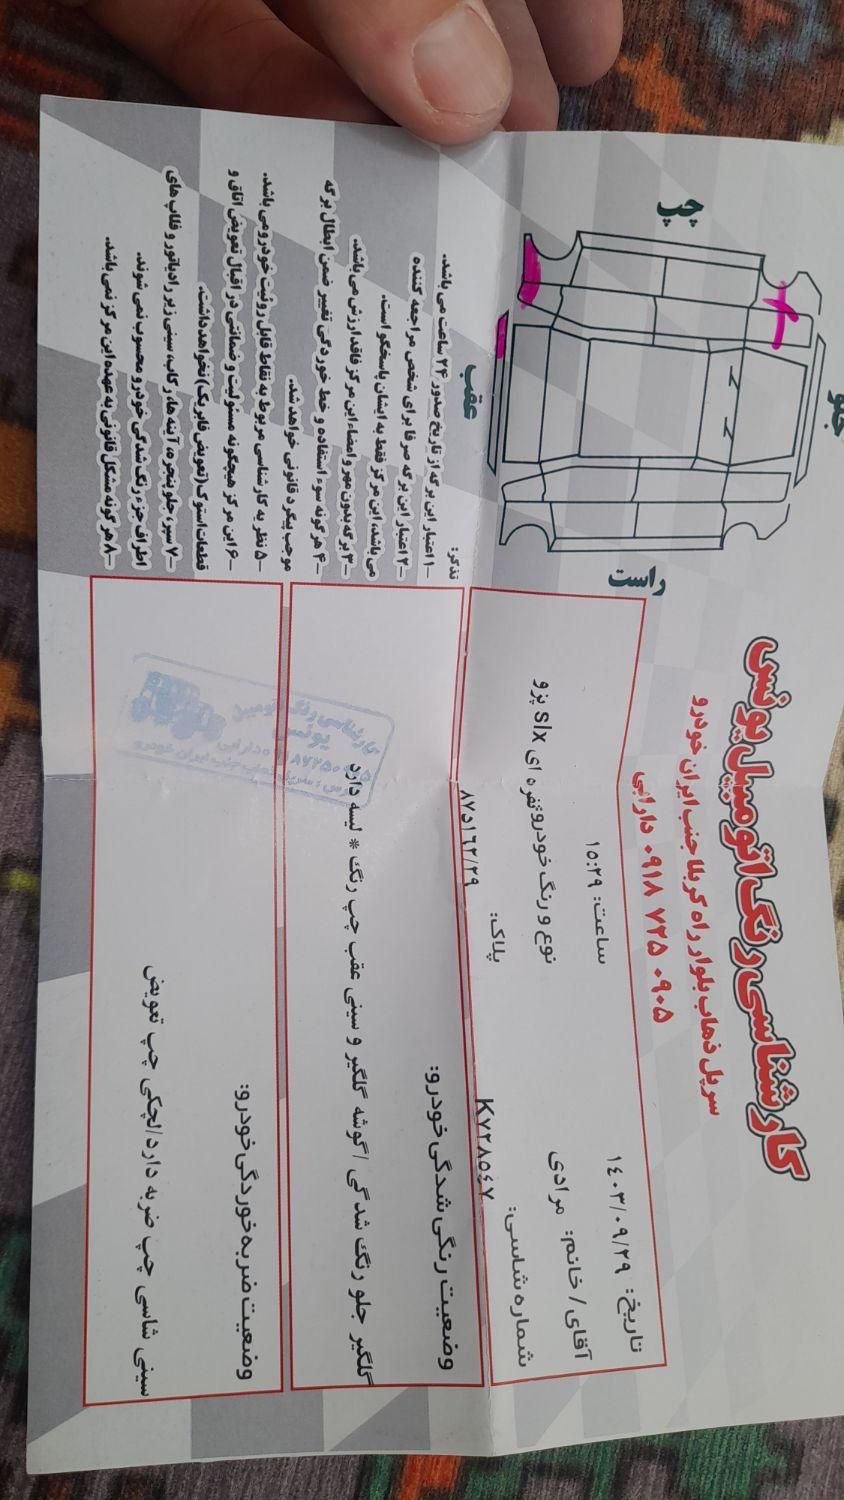 کارشناسی رنگ اتومبیل یونس
سرپل ذهاب بلوار راه کربلا جنب ایران خودرو
۰۹۱۸ ۷۲۵ ۰۹۰۵ دارابی
تاریخ: ۱۴۰۳/۰۹/۲۹
ساعت: ۱۵:۲۹
آقای / خانم: مرادی
نوع و رنگ خودرو: نقره ای slx پژو
شماره شاسی: K۷۲۸۵۴۷
پلاک: ۸۷د۱۶۲/۲۹
وضعیت رنگی شدگی خودرو:
گلگیر جلو رنگ شدگی / گوشه گلگیر و سینی عقب چپ رنگ * لیسه دارد
وضعیت ضربه خوردگی خودرو:
سینی شاسی چپ ضربه دارد/لچکی چپ تعویض
چپ
جلو
عقب
راست
تذکر:
۱- اعتبار این برگه از تاریخ صدور ۲۴ ساعت می باشد.
۲- اعتبار این برگه صرفا برای شخص مراجعه کننده
می باشد، این مرکز فقط به ایشان پاسخگو است.
۳- برگه بدون مهر و امضاء این مرکز فاقد ارزش می باشد.
۴- هر گونه سوء استفاده و خط خوردگی تغییر ضمن ابطال برگه
موجب پیگرد قانونی خواهد شد.
۵- نظر به کارشناسی مربوط به نقاط قابل روئیت خودرو می باشد.
۶- این مرکز هیچگونه مسئولیت و ضمانتی در اقبال تعویض اتاق و
قطعات استوک (تعویض فابریک) نخواهد داشت.
۷- سپر، جلو پنجره، آینه ها، رکاب، سینی زیر رادیاتور و قلاب های
اطراف جزء رنگ شدگی خودرو محسوب نمی شوند.
۸- هر گونه مشکل قانونی به عهده این مرکز نمی باشد.
کارشناسی رنگ اتومبیل
یونس